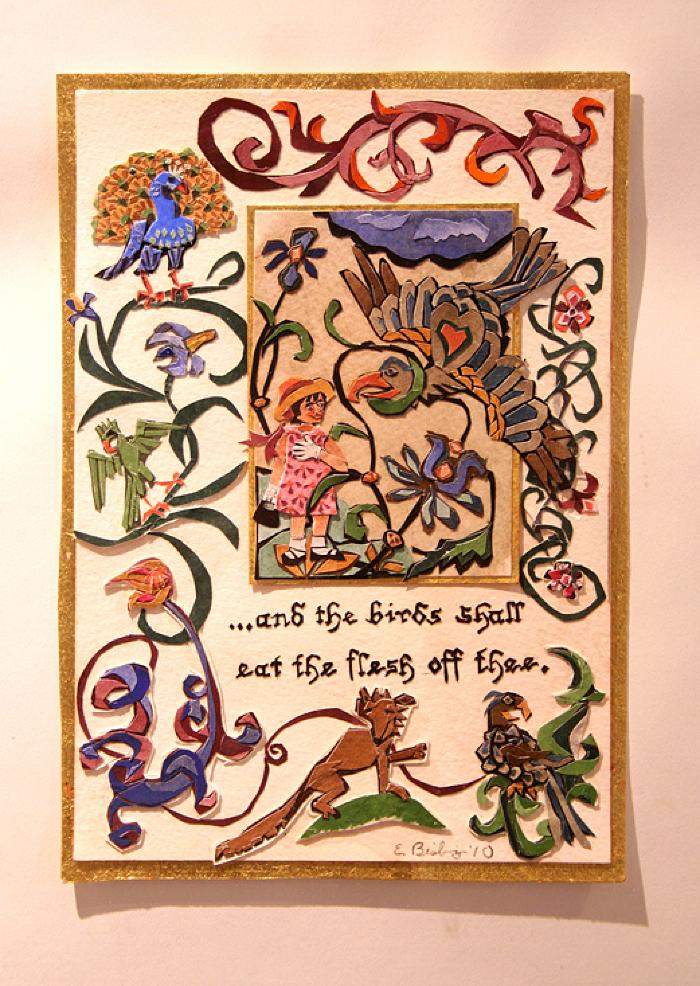 ...and the birds shall
eat the flesh off thee.
E. 
'10